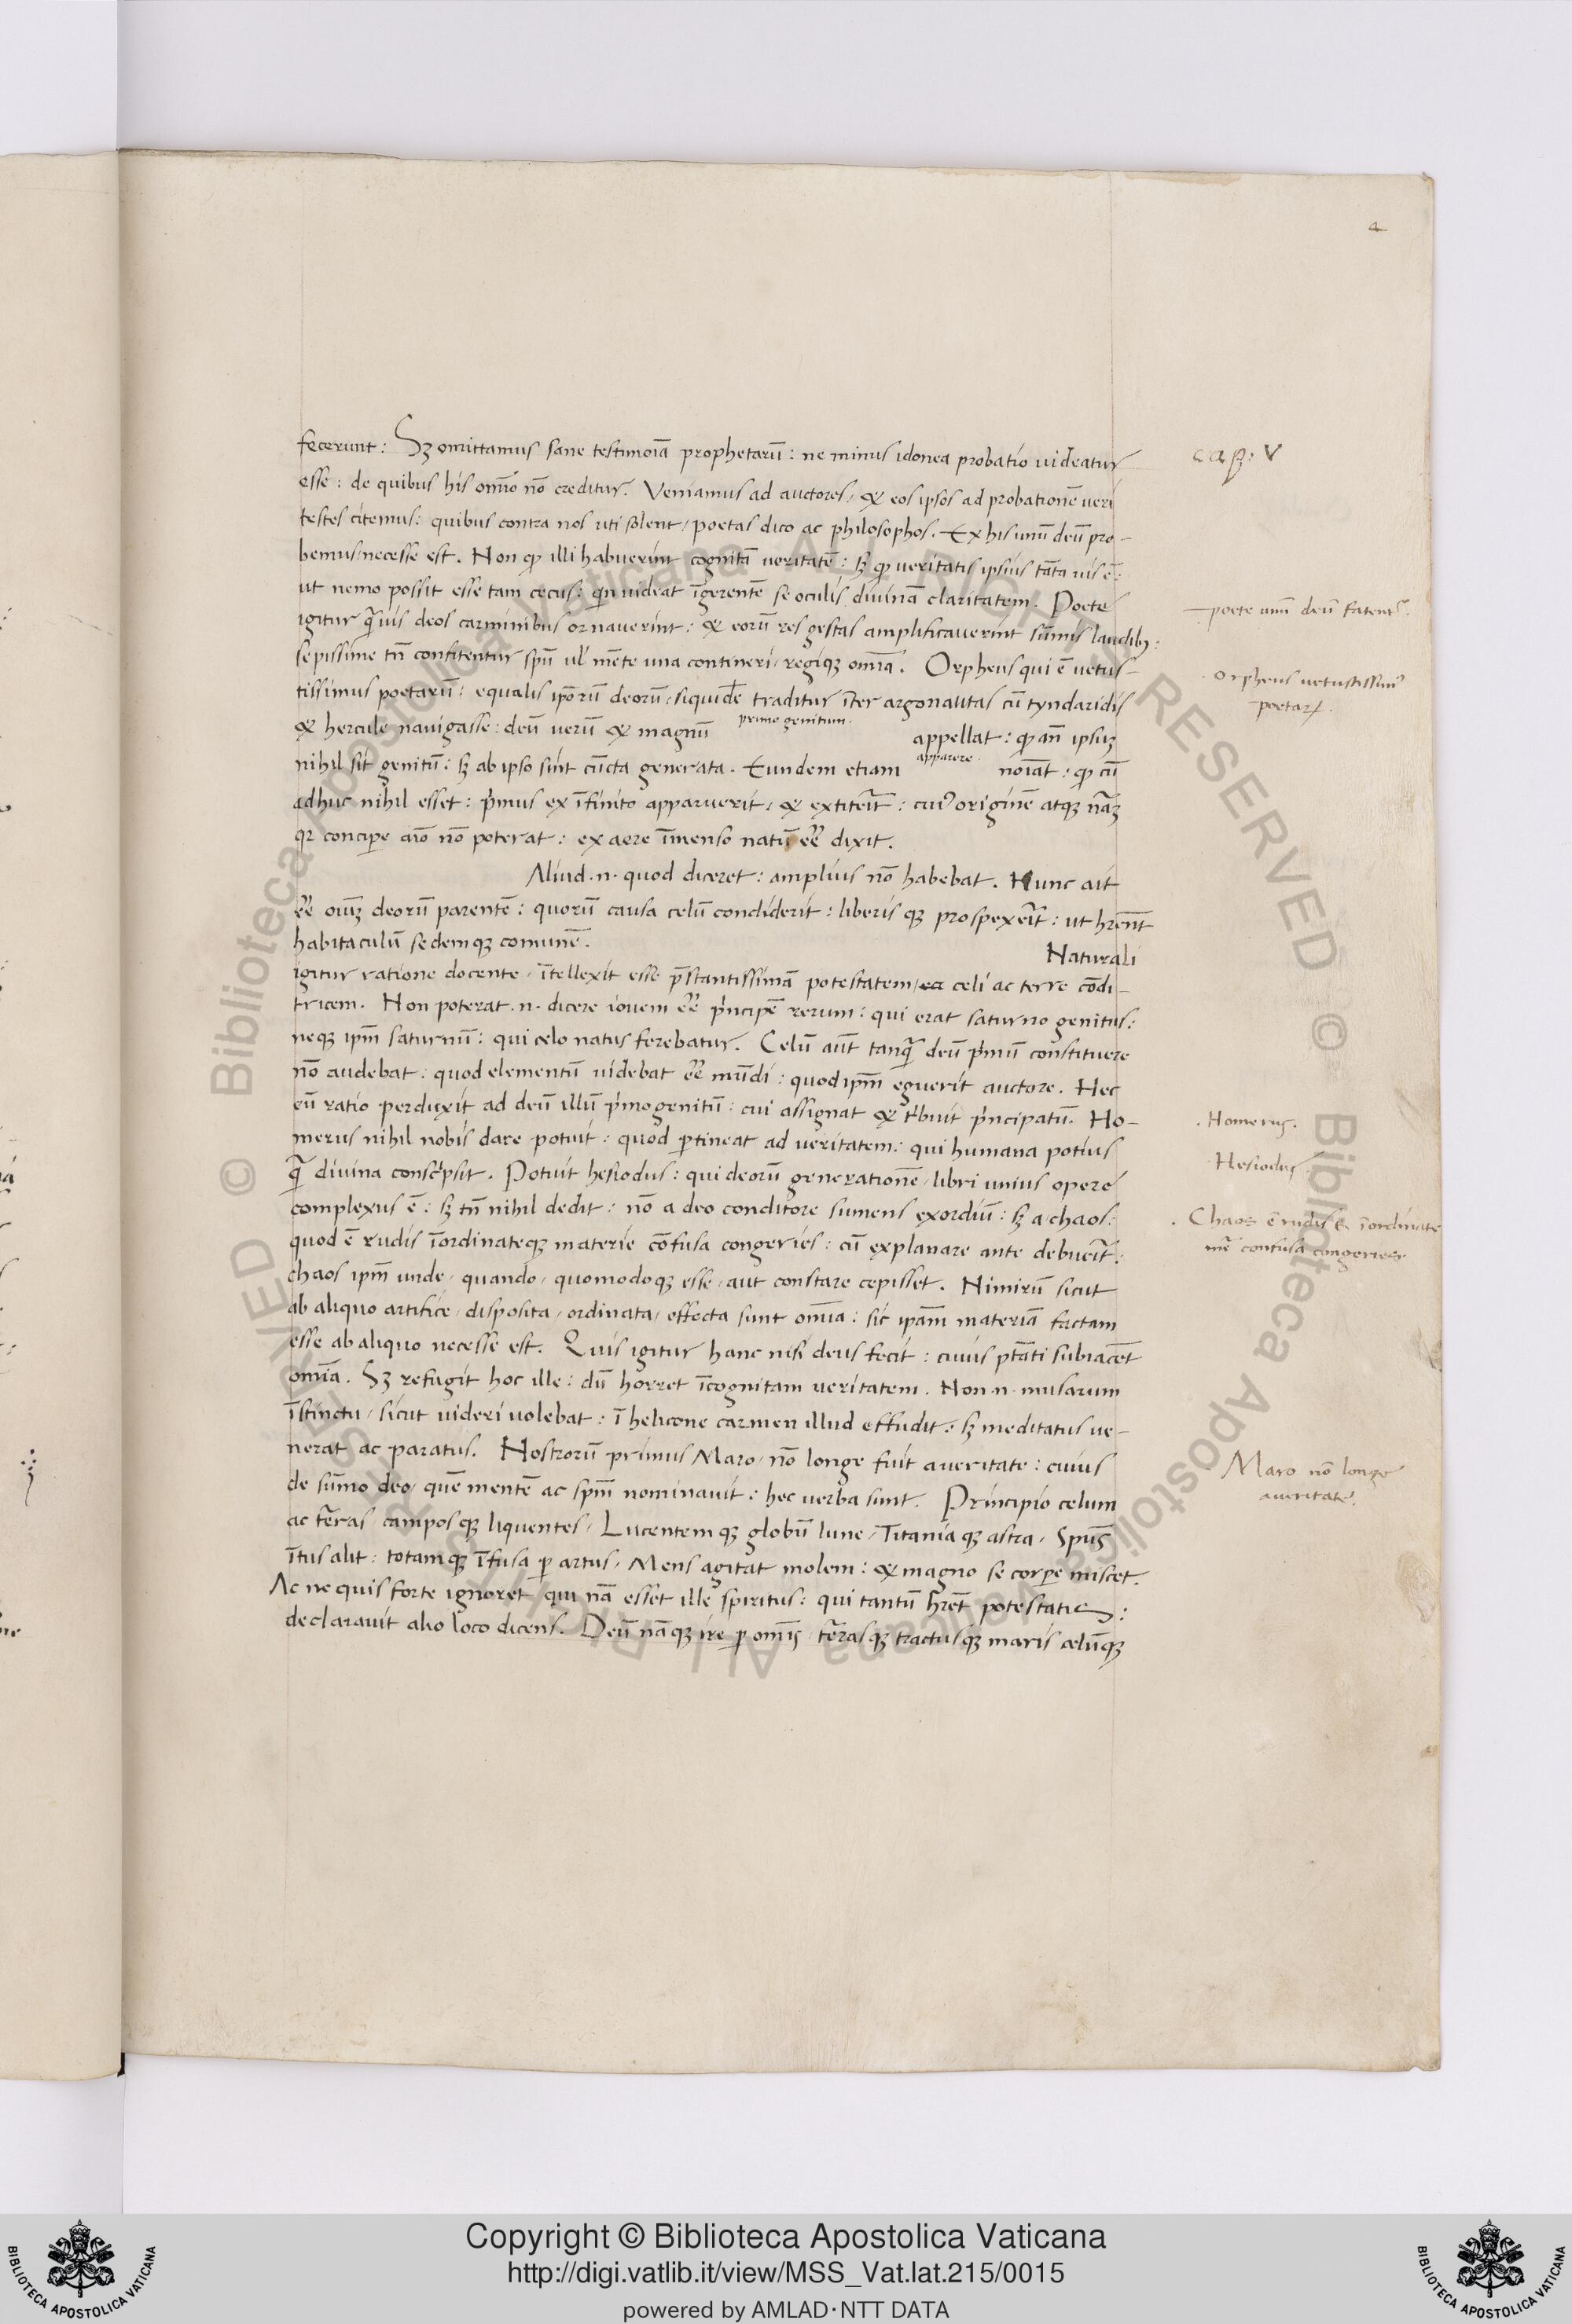 4
fecerunt: Sꝫ omittamus sane testimoĩa prophetarũ: ne minus idonea probatio uideatur
esse: de quibus his omĩo nõ creditur. Veniamus ad auctores, & eos ipsos ad probationẽ ueri
testes citemus: quibus contra nos uti solent, poetas dico ac philosophos. Ex his unũ deũ pro-
bemus necesse est. Non ꝙ illi habuerint cognitã ueritatẽ: sꝫ ꝙ ueritatis ipsius tãta uis ẽ:
ut nemo possit esse tam cecus: qin uideat ĩgerentẽ se oculis diuinã claritatem. Poete
igitur q̃uis deos carminibus ornauerint: & eorũ res gestas amplificauerint sũmis laudibꝫ:
sepissime tñ confitentur spũ ul' mẽte una contineri, regiqꝫ omĩa. Orpheus qui ẽ uetus-
tissimus poetarũ: equalis ipõrũ deorũ, siquidẽ traditur ĩter argonautas cũ tyndaridis
& hercule nauigasse: deũ uerũ & magnũ primo genitum. appellat: ꝙ añ ipsuꝫ
nihil sit genitũ: sꝫ ab ipso sint cũcta generata. Eundem etiam apparere noĩat: ꝙ cũ
adhuc nihil esset: p̃mus ex ĩfinito apparuerit, & extiterĩt: cui' originẽ atqꝫ nãꝫ
qr concipe aĩo nõ poterat: ex aere ĩmenso natũ eẽ dixit.
Aliud .n. quod diceret: amplius nõ habebat. Hunc ait
eẽ oiuꝫ deorũ parentẽ: quorũ causa celũ condiderit: liberis qꝫ prospexerĩt: ut hrẽnt
habitaculũ sedemqꝫ comunẽ. Naturali
igitur ratione docente, ĩtellexit esse p̃stantissimã potestatem, celi ac terre cõdi-
tricem. Non poterat .n. dicere iouem eẽ p̃ncipẽ rerum: qui erat saturno genitus:
neqꝫ ipm̃ saturnũ: qui celo natus ferebatur. Celũ aũt tanq̃ deũ p̃mũ constituere
nõ audebat: quod elementũ uidebat eẽ mũdi: quod ipm̃ eguerit auctore. Hec
eũ ratio perduxit ad deũ illũ p̃mogenitũ: cui assignat & tⁱbuit p̃ncipatũ. Ho-
merus nihil nobis dare potuit: quod ꝑtineat ad ueritatem: qui humana potius
q̃ diuina conscⁱpsit. Potuit hesiodus: qui deorũ generationẽ, libri unius opere
complexus ẽ: sꝫ tñ nihil dedit: nõ a deo conditore sumens exordiũ: sꝫ a chaos:
quod ẽ rudis ĩordinateqꝫ materie cõfusa congeries: cũ explanare ante debuerĩt:
chaos ipm̃ unde, quando, quomodoqꝫ esse, aut constare cepisset. Nimirũ sicut
ab aliquo artifice, disposita, ordinata, effecta sunt omĩa: sic ipãm materiã factam
esse ab aliquo necesse est. Quis igitur hanc nisi deus fecit: cuius ptãti subiacẽt
omĩa. Sꝫ refugit hoc ille: dũ horret ĩcognitam ueritatem. Non .n. musarum
ĩstinctu, sicut uideri uolebat: ĩ helicone carmen illud effudit: sꝫ meditatus ue-
nerat ac paratus. Nostrorũ primus Maro, nõ longe fuit a ueritate: cuius
de sũmo deo, quẽ mentẽ ac spm̃ nominauit: hec uerba sunt. Principio celum
ac tẽras camposqꝫ liquentes, Lucentemqꝫ globũ lune, Titaniaqꝫ astra, Spũs
ĩtus alit: totamqꝫ ĩfusa ꝑ artus, Mens agitat molem: & magno se corpe miscet.
Ac ne quis forte ignoret qui nã esset ille spiritus: qui tantũ hrẽt potestatis:
declarauit alio loco dicens. Deũ nãqꝫ ire ꝑ omĩs, tẽrasqꝫ tractusqꝫ maris celũqꝫ
cap: V
poete unũ deũ fatent'.
Orpheus uetustissim'
poetaꝝ.
Homerus.
Hesiodus
Chaos ẽ rudis & ĩordinate
mẽ confusa congeries
Maro nõ longe
a ueritate.
Copyright © Biblioteca Apostolica Vaticana
http://digi.vatlib.it/view/MSS_Vat.lat.215/0015
powered by AMLAD·NTT DATA
BIBLIOTECA APOSTOLICA VATICANA
BIBLIOTECA APOSTOLICA VATICANA
© Biblioteca Apostolica Vaticana ALL RIGHTS RESERVED © Biblioteca Apostolica Vaticana ALL RIGHTS RESERVED